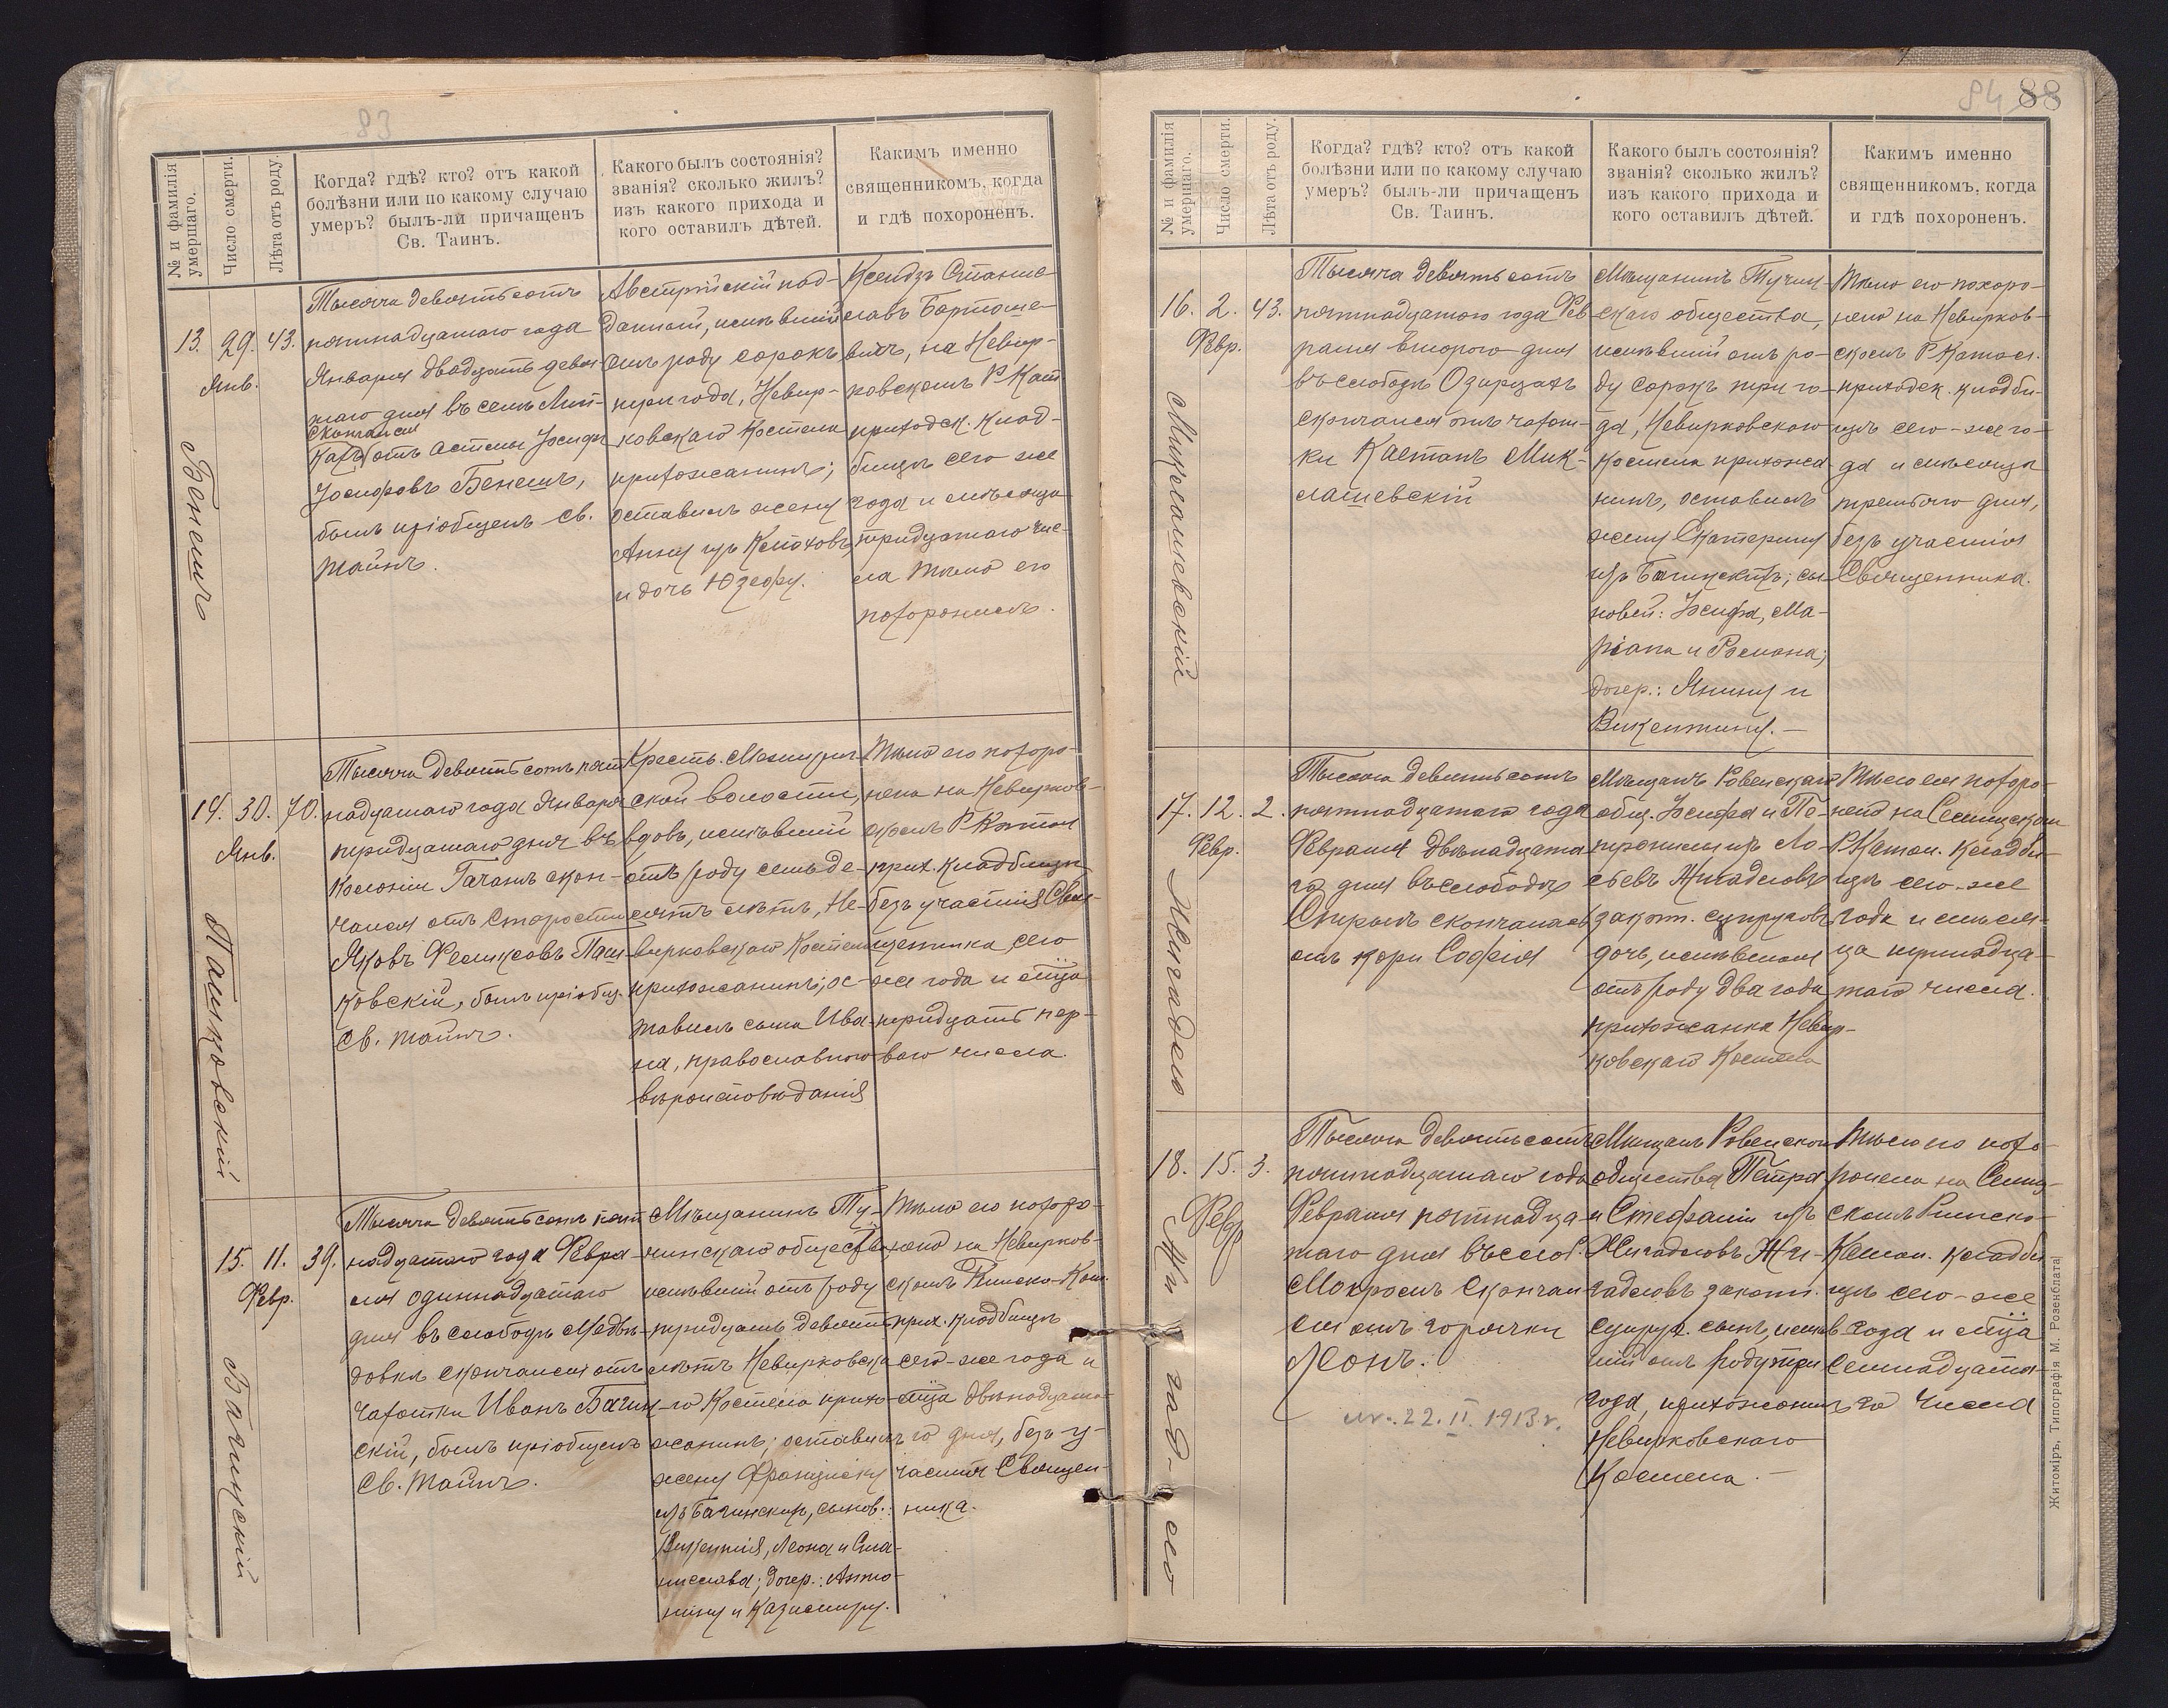 83
№ и фамилія умершаго.
Число смерти.
Лѣта отъ роду.
Когда? гдѣ? кто? отъ какой
болѣзни или по какому случаю
умеръ? былъ-ли причащенъ
Св. Таинъ.
Какого былъ состоянія?
званія? сколько жилъ?
изъ какого прихода и
кого оставилъ дѣтей.
Какимъ именно
священникомъ, когда
и гдѣ похороненъ.
13. 29. 43.
Янв.
Бенешъ
Тысяча девятьсотъ
пятнадцатаго года
Января двадцать девя-
таго дня въ селѣ
скончался
отъ астмы Іосифъ
Іосифовъ Бенешъ,
былъ пріобщенъ Св.
Тайнъ.
Австрійскій под-
данный, имѣвшій
отъ роду сорокъ
три года, Невир-
ковскаго Костела
прихожанинъ;
оставилъ жену
Анну изъ
и дочь Юзефу.
Ксендзъ Стание-
лавъ Бартоше-
вичъ, на Невир-
ковскомъ Р Кат
приходск. клад-
бищѣ сего же
года и мѣсяца
тридцатаго чис-
ла тѣло его
похоронилъ.
14. 30. 70.
Янв.
Пашковскій
Тысяча девятьсотъ пят
надцатаго года Января
тридцатаго дня въ
Колоніи Гачанъ скон-
чался отъ старости
Яковъ Феликсовъ Паш-
ковскій, былъ пріобщ.
Св. Тайнъ.
Кресть. Межирич-
ской волости,
вдовъ, имѣвшій
отъ роду семьде-
сятъ лѣтъ, Не-
вирковскаго Костела
прихожанинъ; ос-
тавилъ сына Ива-
на, православнаго
вѣроисповѣданія
Тѣло его похоро-
нено на Невирков-
скомъ Р Катол
прих. кладбищѣ
безъ участія Свя-
щенника сего
же года и мѣца
тридцать пер-
ваго числа.
15. 11. 39.
Февр.
Багинскій
Тысяча девятьсотъ пят
надцатаго года Февра-
ля одиннадцатаго
дня въ слободѣ Медвѣ-
довкѣ скончался отъ
чахотки Иванъ Багин-
скій, былъ пріобщенъ
Св. Тайнъ.
Мѣщанинъ Ту-
чинскаго общества
имѣвшій отъ роду
тридцать девять
лѣтъ Невирковска
го Костела прихо-
жанинъ; оставилъ
жену Францишку
изъ Багинскихъ, сынов.:
Викентія, Леона и Ста-
нислава; дочер.: Анто-
нину и Казимиру.
Тѣло его похоро-
нено на Невирков-
скомъ Римско-Кат.
прих. кладбищѣ
сего-же года и
мѣца двѣнадцата-
го дня, безъ у-
частія Священ-
ника.
84 88
№ и фамилія умершаго.
Число смерти.
Лѣта отъ роду.
Когда? гдѣ? кто? отъ какой
болѣзни или по какому случаю
умеръ? былъ-ли причащенъ
Св. Таинъ.
Какого былъ состоянія?
званія? сколько жилъ?
изъ какого прихода и
кого оставилъ дѣтей.
Какимъ именно
священникомъ, когда
и гдѣ похороненъ.
16. 2. 43.
Февр.
Миклашевскій
Тысяча девятьсотъ
пятнадцатаго года Фев
раля второго дня
въ слободѣ Озирцахъ
скончался отъ чахот-
ки Каетанъ Мик-
лашевскій
Мѣщанинъ Тучин-
скаго общества,
имѣвшій отъ ро-
ду сорокъ три го-
да, Невирковскаго
костела прихожа
нинъ, оставилъ
жену Екатерину
изъ Багинскихъ; сы-
новей: Іосифа, Ма-
ріана и Романа;
дочер.: Янину и
Викентину.—
Тѣло его похоро-
нено на Невирков-
скомъ Р Катол.
приходск. кладби-
щѣ сего-же го-
да и мѣсяца
третьяго дня,
безъ участія
Священника.
17. 12. 2.
Февр.
Жигадло
Тысяча девятьсотъ
пятнадцатаго года
Февраля двѣнадцата
го дня въ слободѣ
скончалась
отъ кори Софія
Мѣщанъ Ровенскаго
общ. Іосифа и Пе-
тронели изъ
Жигадловъ
закон. супруговъ
дочь, имѣвшая
отъ роду два года
прихожанка Невир-
ковскаго Костела
Тѣло ея похоро-
нено на
Р Катол. кладби-
щѣ сего-же
года и мѣся-
ца тринадца-
таго числа.
18. 15. 3.
Февр
Жигадло
Тысяча девятьсотъ
пятнадцатаго года
Февраля пятнадца-
таго дня въ слоб.
Мокромъ скончал-
ся отъ горячки
Леонъ.
ur. 22. II. 1913 r.
Мѣщанъ Ровенскаго
общества Петра
и Стефаніи изъ
Жигадловъ, Жи-
гадловъ закон.
супруг. сынъ, имѣв
шій отъ роду три
года, прихожанинъ
Невирковскаго
Костела.—
Тѣло его похо-
ронено на
скомъ Римско-
Катол. кладби
щѣ сего-же
года и мѣца
семнадцата-
го числа
Житоміръ, Типографія М. Розенблата